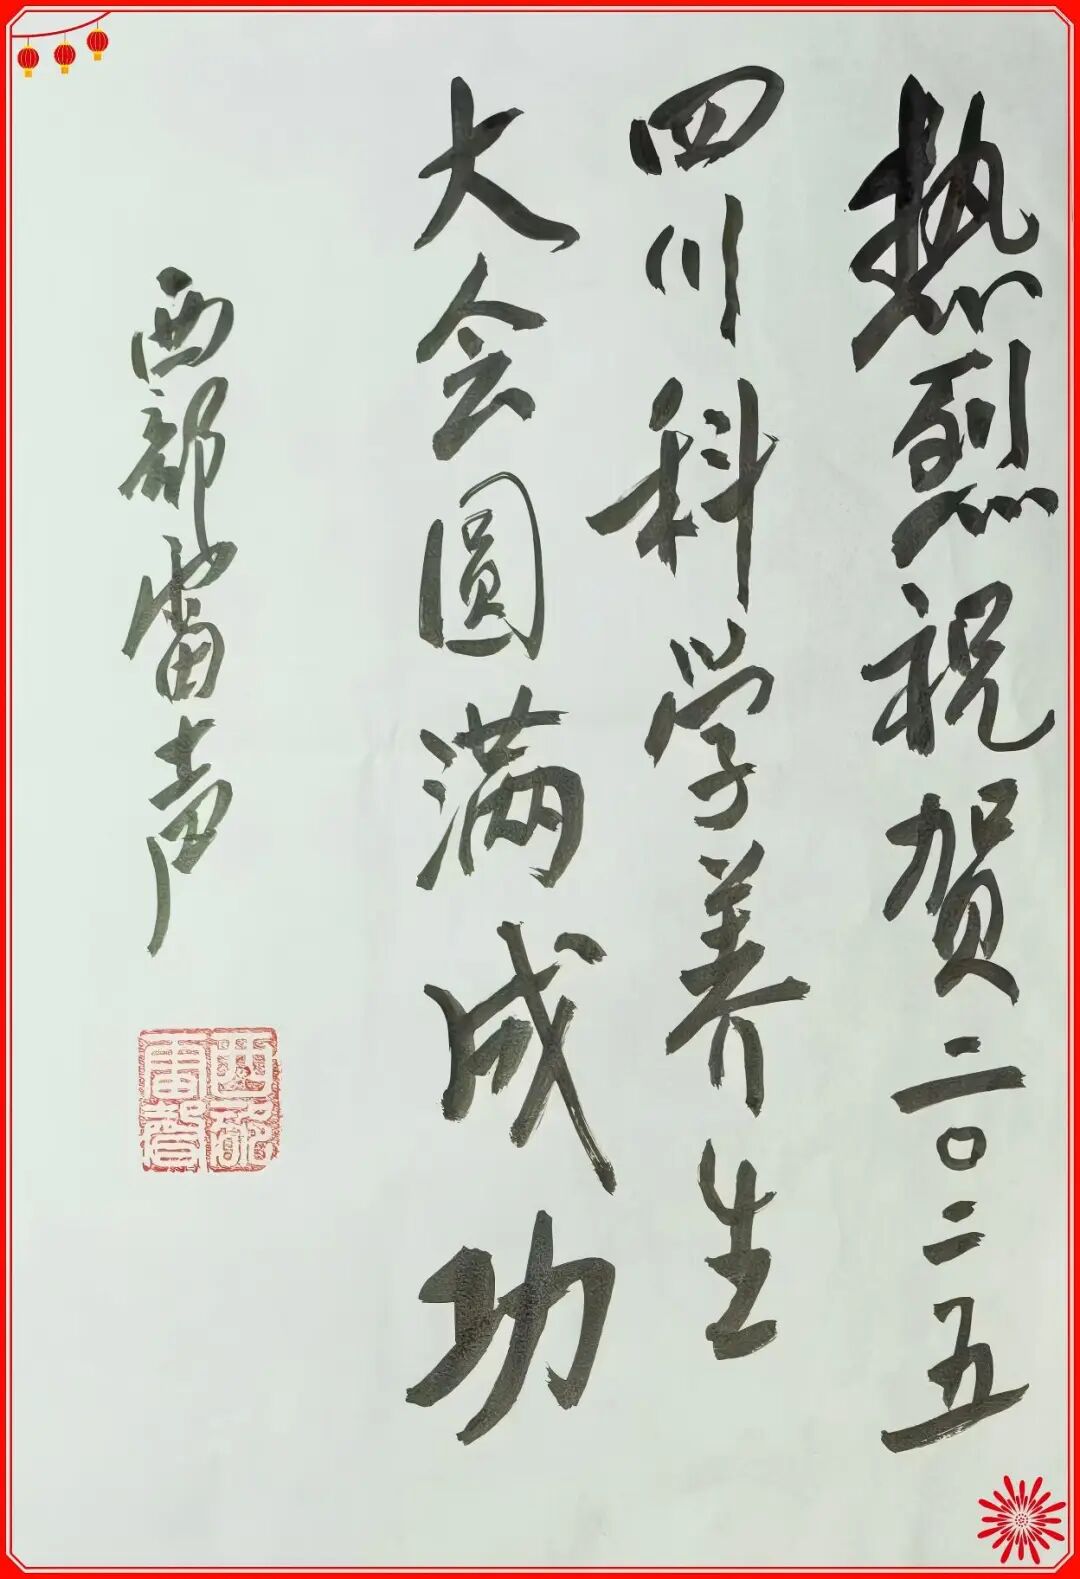 热烈祝贺二〇二五
四川科学养生
大会圆满成功
西部雷声
西部
雷声